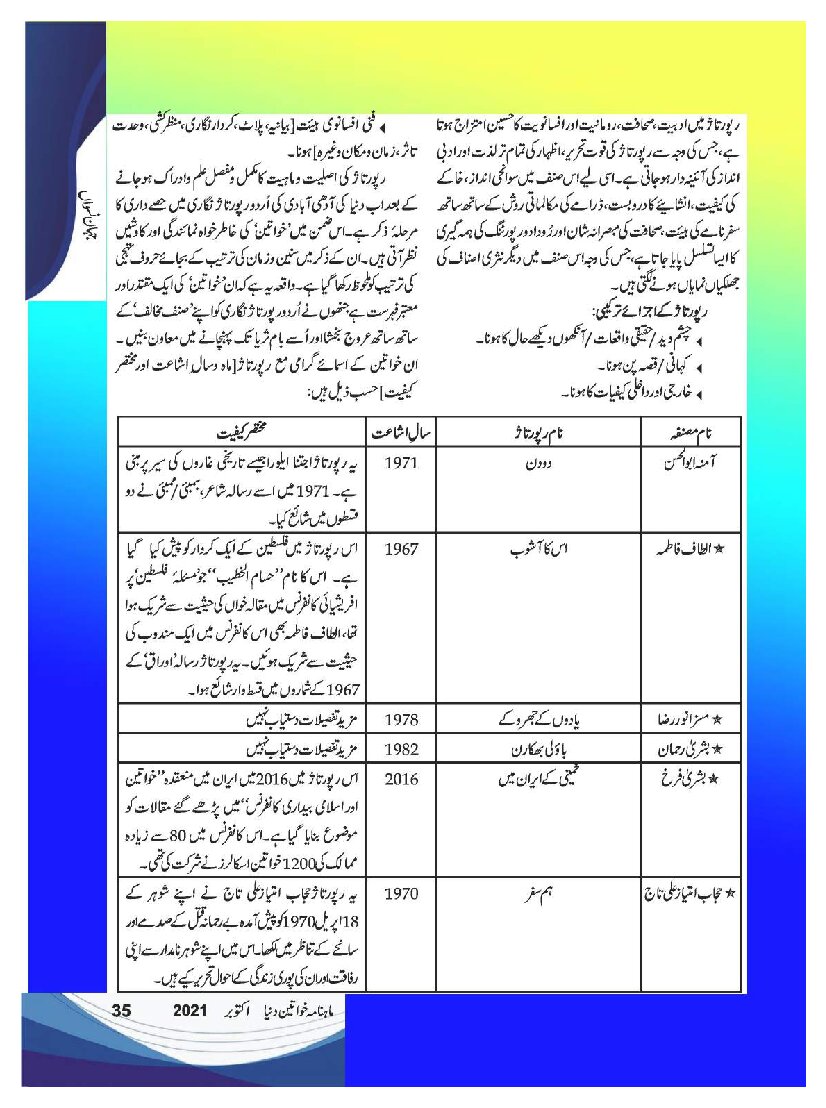 رپورتاژ میں ادبیت، صحافت، رومانیت اور افسانویت کا حسین امتزاج ہوتا
ہے، جس کی وجہ سے رپورتاژ کی قوت تحریر، اظہار کی تمام تر لذت اور ادبی
انداز کی آئینہ دار ہو جاتی ہے۔ اسی لیے اس صنف میں سوانحی انداز، خاکے
کی کیفیت، انشائیے کا دروبست، ڈرامے کی مکالماتی روش کے ساتھ ساتھ
سفرنامے کی ہیئت، صحافت کی مبصرانہ شان اور رُوداد و رپورٹنگ کی ہمہ گیری
کا ایسا تسلسل پایا جاتا ہے، جس کی وجہ اس صنف میں دیگر نثری اصناف کی
جھلکیاں نمایاں ہونے لگتی ہیں۔
رپورتاژ کے اجزائے ترکیبی:
چشم دید/حقیقی واقعات/آنکھوں دیکھے حال کا ہونا۔
کہانی/قصہ پن ہونا۔
خارجی اور داخلی کیفیات کا ہونا۔
فنی افسانوی ہیئت [بیانیہ، پلاٹ، کردار نگاری، منظر کشی، وحدت
تاثر، زمان و مکان وغیرہ] ہونا۔
رپورتاژ کی اصلیت و ماہیت کا مکمل و مفصل علم و ادراک ہو جانے
کے بعد اب دنیا کی آدھی آبادی کی اُردو رپورتاژ نگاری میں حصے داری کا
مرحلۂ ذکر ہے۔ اس ضمن میں ’خواتین‘ کی خاطر خواہ نمائندگی اور کاوشیں
نظر آتی ہیں۔ ان کے ذکر میں سنین و زمان کی ترتیب کے بجائے حروف تہجی
کی ترتیب کو ملحوظ رکھا گیا ہے۔ واقعہ یہ ہے کہ ان ’خواتین‘ کی ایک مقتدر اور
معتبر فہرست ہے جنھوں نے اُردو رپورتاژ نگاری کو اپنے ’صنف مخالف‘ کے
ساتھ ساتھ عروج بخشا اور اُسے بام ثریا تک پہنچانے میں معاون بنیں۔
ان خواتین کے اسمائے گرامی مع رپورتاژ [ماہ و سال اشاعت اور مختصر
کیفیت] حسب ذیل ہیں:
نام مصنفہ نام رپورتاژ سال اشاعت مختصر کیفیت
آمنہ ابوالحسن دو دن 1971 یہ رپورتاژ اجنتا ایلورا جیسے تاریخی غاروں کی سیر پر مبنی
ہے۔ 1971 میں اسے رسالہ شاعر، بمبئی/ممبئی نے دو
قسطوں میں شائع کیا۔
★ الطاف فاطمہ اس کا آشوب 1967 اس رپورتاژ میں فلسطین کے ایک کردار کو پیش کیا گیا
ہے۔ اس کا نام ’’حسام الخطیب‘‘ جو ’مسئلۂ فلسطین‘ پر
افریشیائی کانفرنس میں مقالہ خواں کی حیثیت سے شریک ہوا
تھا، الطاف فاطمہ بھی اس کانفرنس میں ایک مندوب کی
حیثیت سے شریک ہوئیں۔ یہ رپورتاژ رسالہ ’اوراق‘ کے
1967 کے شماروں میں قسط وار شائع ہوا۔
★ مسز انور رضا یادوں کے جھروکے 1978 مزید تفصلات دستیاب نہیں
★ بشریٰ رحمان باؤلی بھکارن 1982 مزید تفصلات دستیاب نہیں
★ بشریٰ فرخ خمینی کے ایران میں 2016 اس رپورتاژ میں 2016 میں ایران میں منعقدہ ’’خواتین
اور اسلامی بیداری کانفرنس‘‘ میں پڑھے گئے مقالات کو
موضوع بنایا گیا ہے۔ اس کانفرنس میں 80 سے زیادہ
ممالک کی 1200 خواتین اسکالرز نے شرکت کی تھی۔
★ حجاب امتیاز علی تاج ہم سفر 1970 یہ رپورتاژ حجاب امتیاز علی تاج نے اپنے شوہر کے
18 اپریل 1970 کو پیش آمدہ بے رحمانہ قتل کے صدمے اور
سانحے کے تناظر میں لکھا۔ اس میں اپنے شوہر نامدار سے اپنی
رفاقت اور ان کی پوری زندگی کے احوال تحریر کیے ہیں۔
جہان نسواں
ماہنامہ خواتین دنیا اکتوبر 2021 35